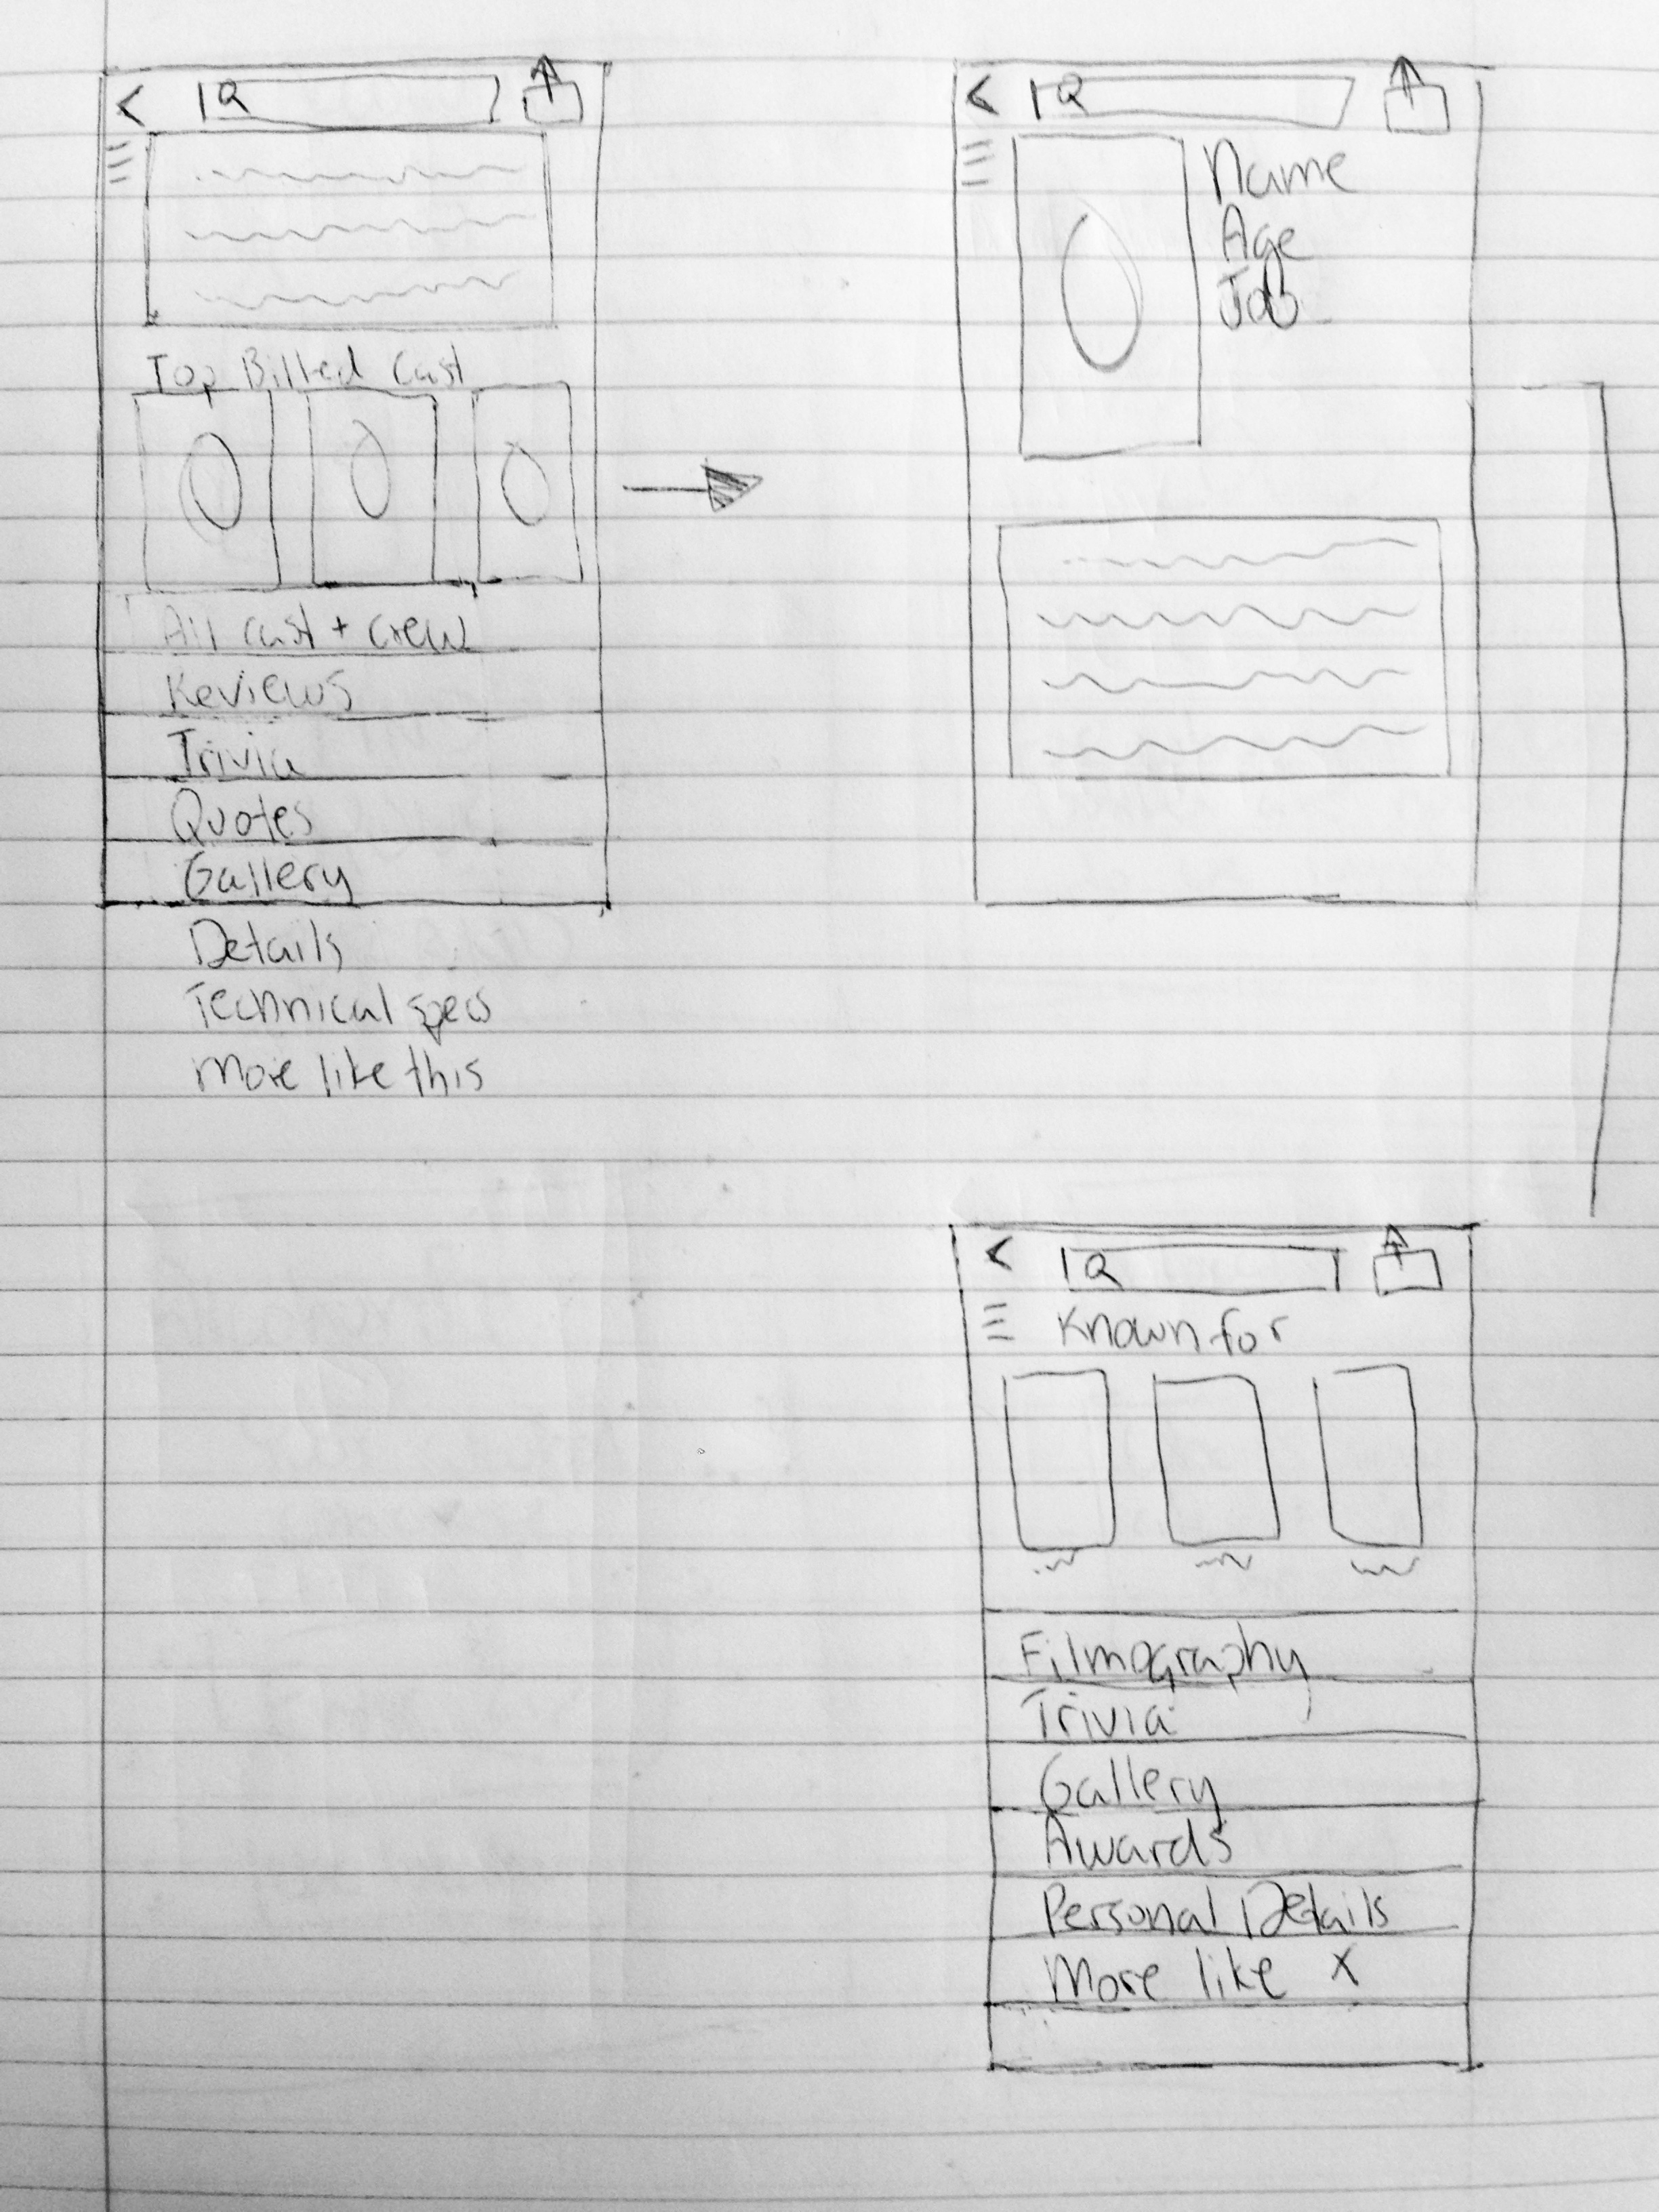 Top Billed Cast
All cast + crew
Reviews
Trivia
Quotes
Gallery
Details
Technical specs
More like this
Name
Age
Job
Known for
Filmography
Trivia
Gallery
Awards
Personal Details
More like X